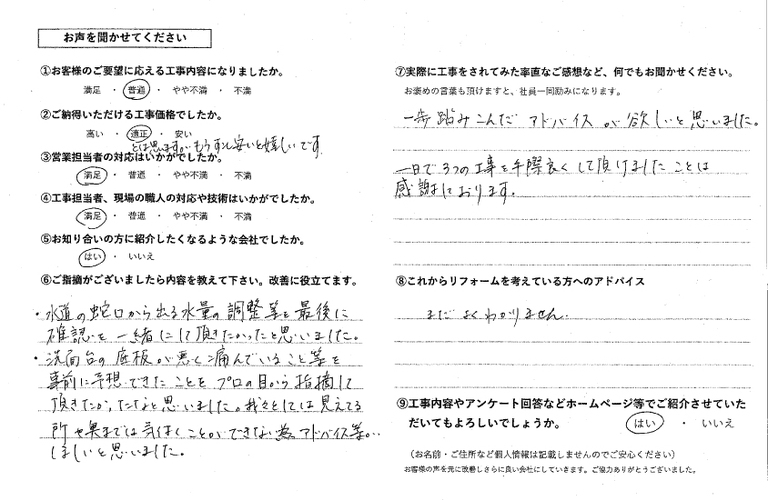 お声を聞かせてください
①お客様のご要望に応える工事内容になりましたか。
満足 ・ 普通 ・ やや不満 ・ 不満
②ご納得いただける工事価格でしたか。
高い ・ 適正 ・ 安い
とは思ますが、もう少し安いと嬉しいです
③営業担当者の対応はいかがでしたか。
満足 ・ 普通 ・ やや不満 ・ 不満
④工事担当者、現場の職人の対応や技術はいかがでしたか。
満足 ・ 普通 ・ やや不満 ・ 不満
⑤お知り合いの方に紹介したくなるような会社でしたか。
はい ・ いいえ
⑥ご指摘がございましたら内容を教えて下さい。改善に役立てます。
・水道の蛇口から出る水量の調整等を最後に
確認を一緒にして頂きたかったと思いました。
・洗面台の底板が悪く痛んでいること等を
事前に予想できたことをプロの目から指摘して
頂きたかったなと思いました。我々としては見えてる
所や奥までは気付くことができない為。アドバイス等が
ほしいと思いました。
⑦実際に工事をされてみた率直なご感想など、何でもお聞かせください。
お褒めの言葉も頂けますと、社員一同励みになります。
一歩踏みこんだアドバイスが欲しいと思いました。
一日で3つの工事を手際良くして頂けましたことは
感謝しております。
⑧これからリフォームを考えている方へのアドバイス
まだよくわかりません。
⑨工事内容やアンケート回答などホームページ等でご紹介させていた
だいてもよろしいでしょうか。 はい ・ いいえ
（お名前・ご住所など個人情報は記載しませんのでご安心ください）
お客様の声を元に改善しさらに良い会社にしていきます。ご協力ありがとうございました。